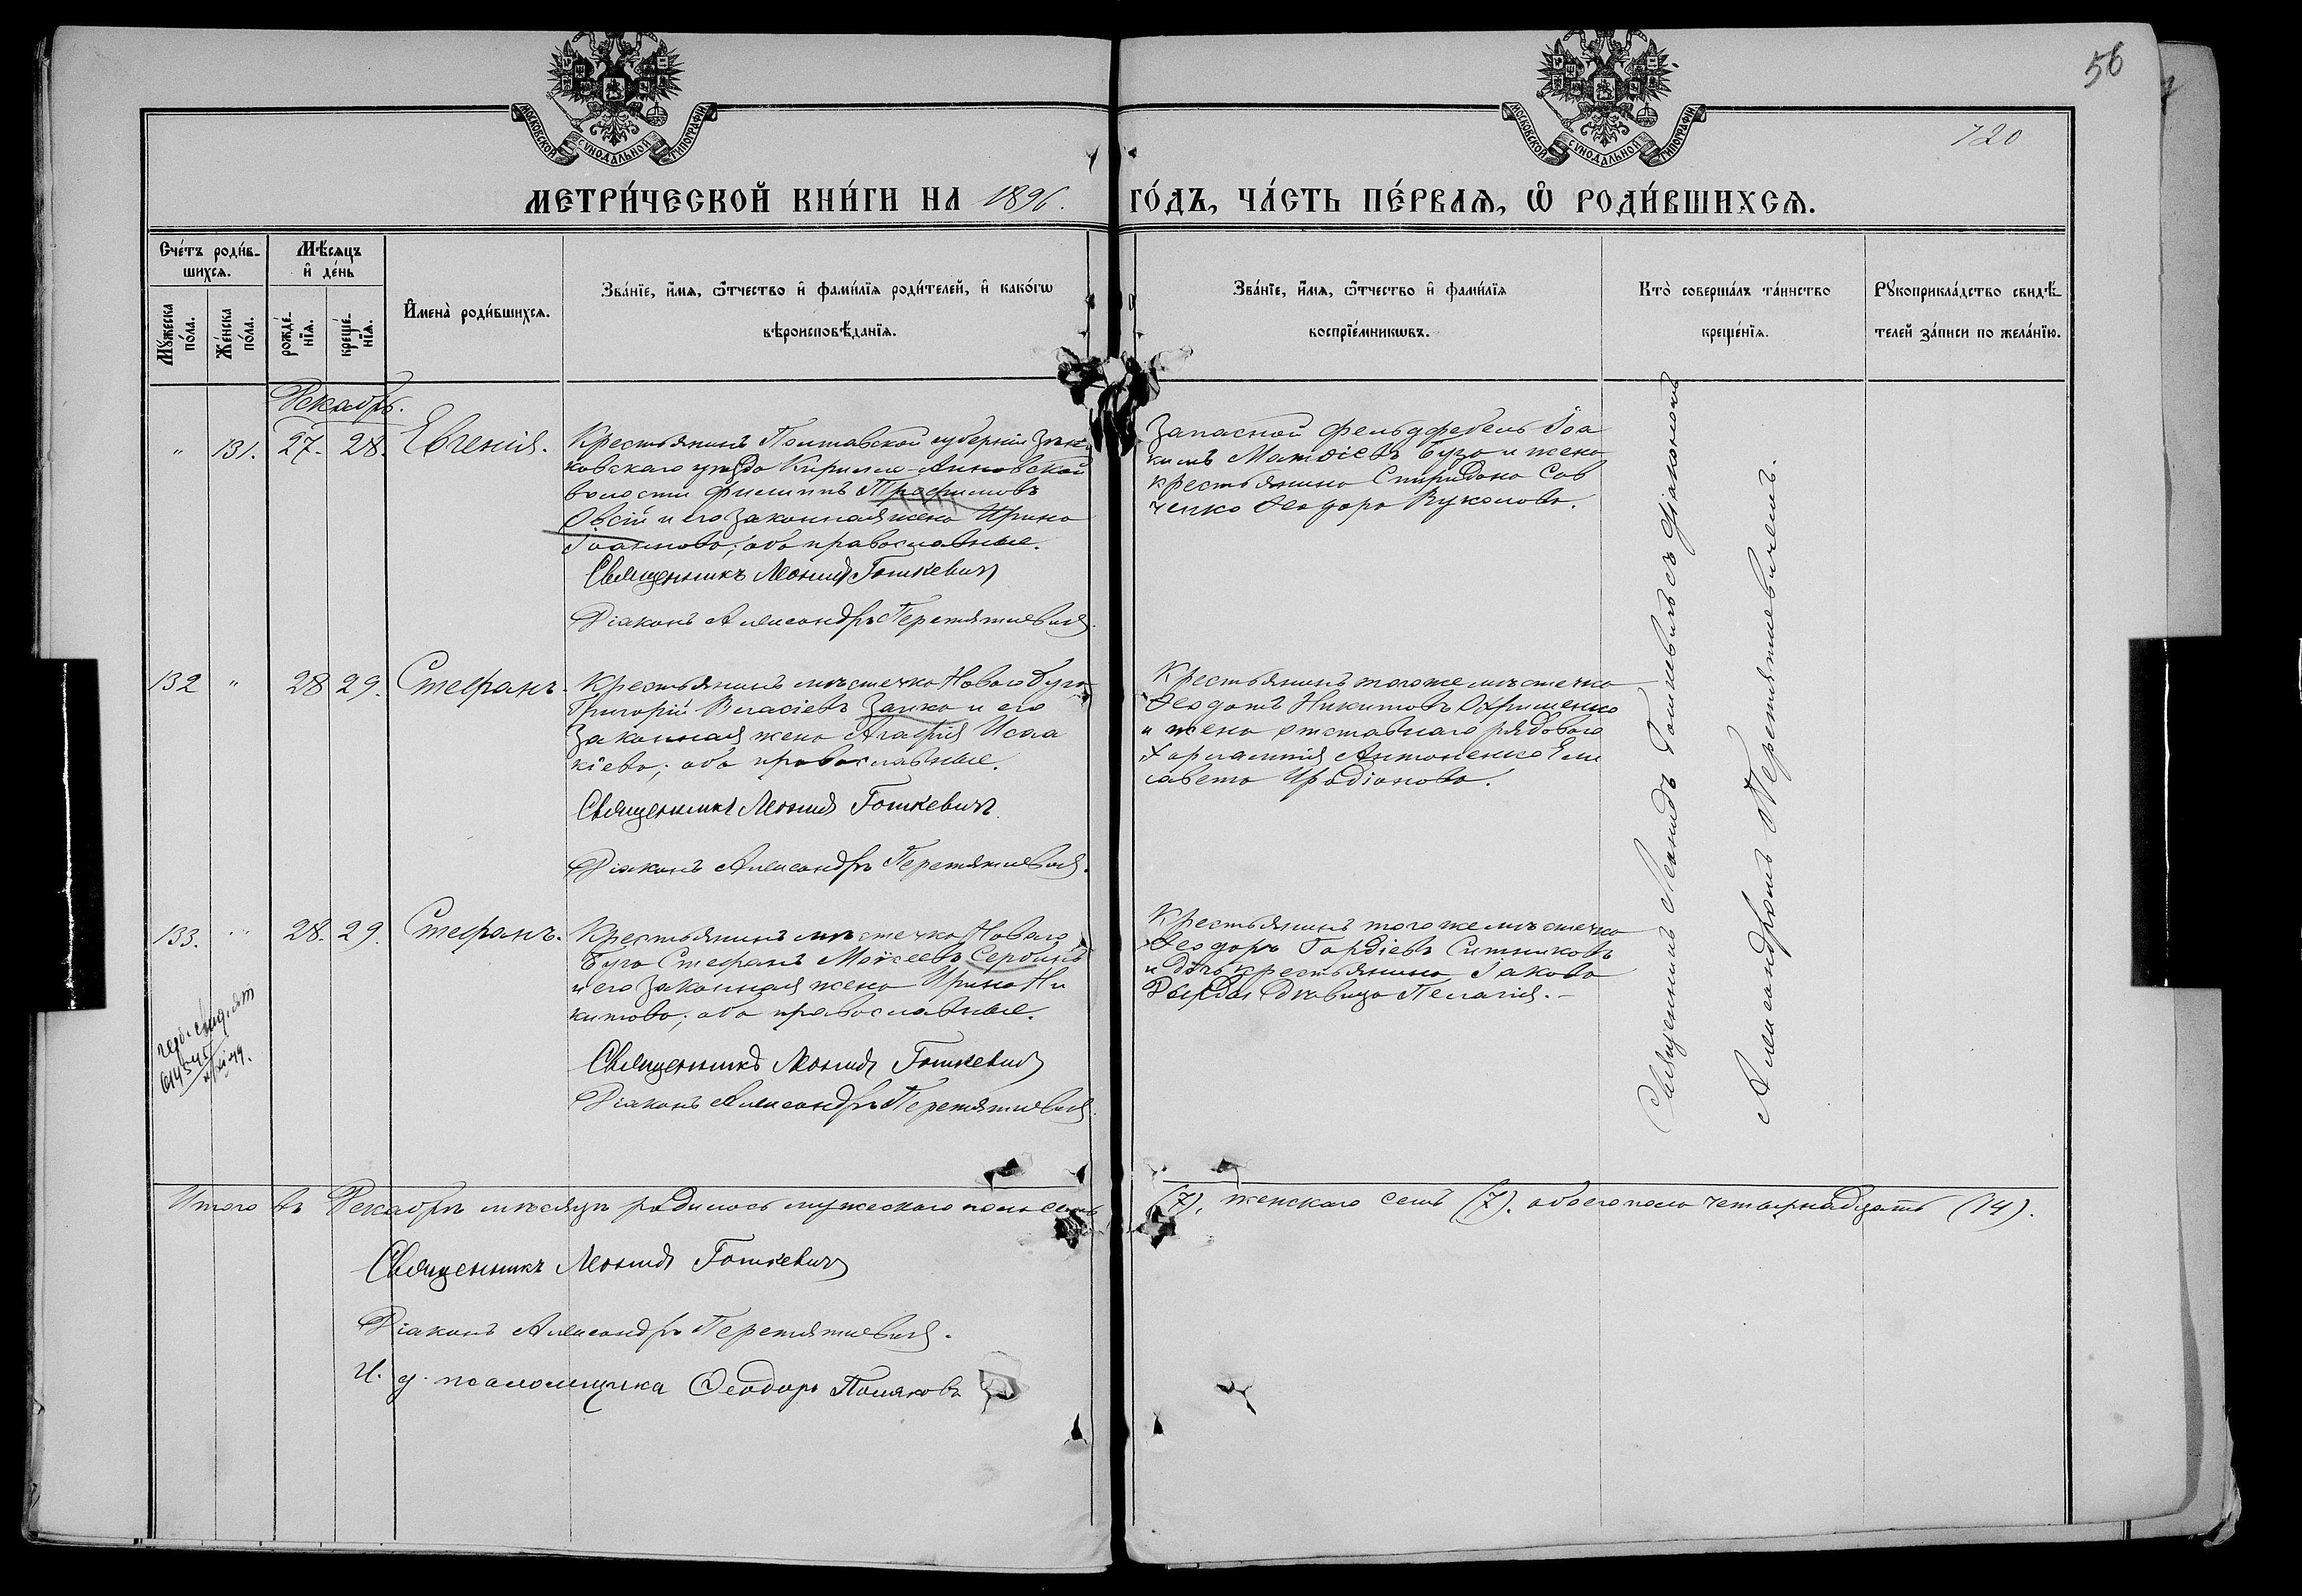 56
120
МОСКОВСКОЙ СѴНОДАЛЬНОЙ ТИПОГРАФІИ
МОСКОВСКОЙ СѴНОДАЛЬНОЙ ТИПОГРАФІИ
МЕТРИ́ЧЕСКОЙ КНИ́ГИ НА 1896. ГО́ДЪ, ЧА́СТЬ ПЕ́РВАЯ, Ѡ҆ РОДИ́ВШИХСЯ.
Сче́тъ роди́в-
шихся.
Мѣ́сяцъ
и҆ де́нь
Мꙋ́жеска
по́ла.
Же́нска
по́ла.
рожде́-
нїя.
креще́-
нїя.
И҆мена̀ роди́вшихся.
Зва́нїе, и҆́мя, ѻ҆́тчество и҆ фами́лїя роди́телей, и҆ како́гѡ
вѣроисповѣ́данїя.
Зва́нїе, и҆́мя, ѻ҆́тчество и҆ фами́лїя
воспрїе́мникѡвъ.
Кто̀ соверша́лъ та́инство
креще́нїя.
Рꙋкоприкла́дство свидѣ́-
телей за́писи по жела́нїю.
Декабрь.
" 131. 27. 28. Евгенія.
Крестьянинъ Полтавской губерніи Зѣнь
ковскаго уѣзда Кирилло-Анновской
волости Филиппъ Трофимовъ
Овсій и его законная жена Ирина
Іоаннова; оба православные.
Священникъ Леонидъ Гошкевичъ
Діаконъ Александръ Перетятковичъ.
Запасной фельдфебель Іоа
кимъ Матѳіевъ Буго и жена
крестьянина Спиридона Сав
ченко Ѳеодора Вуколова.
132 " 28 29. Стефанъ.
Крестьянинъ мѣстечка Новаго Буга
Григорій Власіевъ Заика и его
законная жена Агафія Исаа
кіева; оба православные.
Священникъ Леонидъ Гошкевичъ.
Діаконъ Александръ Перетятковичъ.
Крестьянинъ тогоже мѣстечка
Ѳеодотъ Никитовъ Охрименко
и жена отставнаго рядового
Харлампія Антоненко Ели
савета Иродіонова.
133. " 28. 29. Стефанъ.
Крестьянинъ мѣстечка Новаго
Буга Стефанъ Моѵсеевъ Сербинъ
и его законная жена Ирина Ни
китова; оба православные.
Священникъ Леонидъ Гошкевичъ
Діаконъ Александръ Перетятковичъ.
Крестьянинъ тогоже мѣстечка
Ѳеодоръ Гордіевъ Ситниковъ
и дочь крестьянина Іакова
дѣвица Пелагія.-
Священникъ Леонидъ Гошкевичъ съ діакономъ
Александромъ Перетятковичемъ.
Итого въ Декабрѣ мѣсяцѣ родилось мужескаго пола семь (7), женскаго семь (7). обоего пола четырнадцать (14).
Священникъ Леонидъ Гошкевичъ
Діаконъ Александръ Перетятковичъ.
И. д. псаломщика Ѳеодоръ Поляковъ